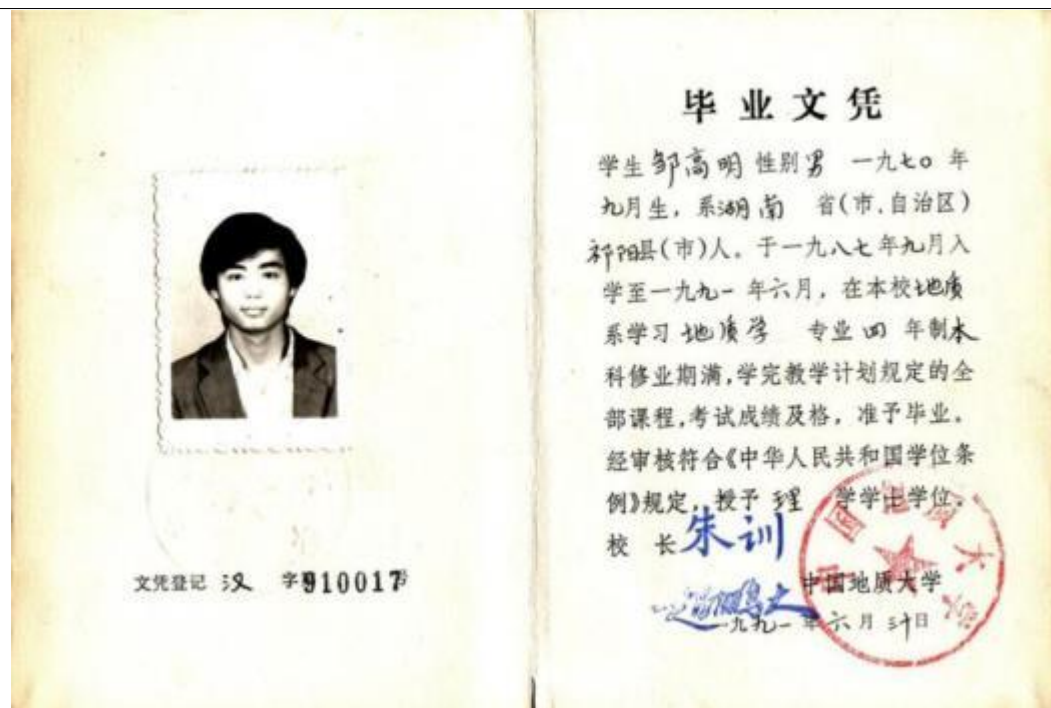 文凭登记 汉 字910017号
毕业文凭
学生邹高明 性别男 一九七〇 年
九月生, 系湖南 省(市.自治区)
祁阳县(市)人。于一九八七年九月入
学至一九九一 年六月, 在本校地质
系学习 地质学 专业 四 年制本
科修业期满,学完教学计划规定的全
部课程,考试成绩及格, 准予毕业。
经审核符合《中华人民共和国学位条
例》规定, 授予 理 学学士学位。
校 长 朱训
中国地质大学
一九九一 年 六 月 卅日
中国地质大学